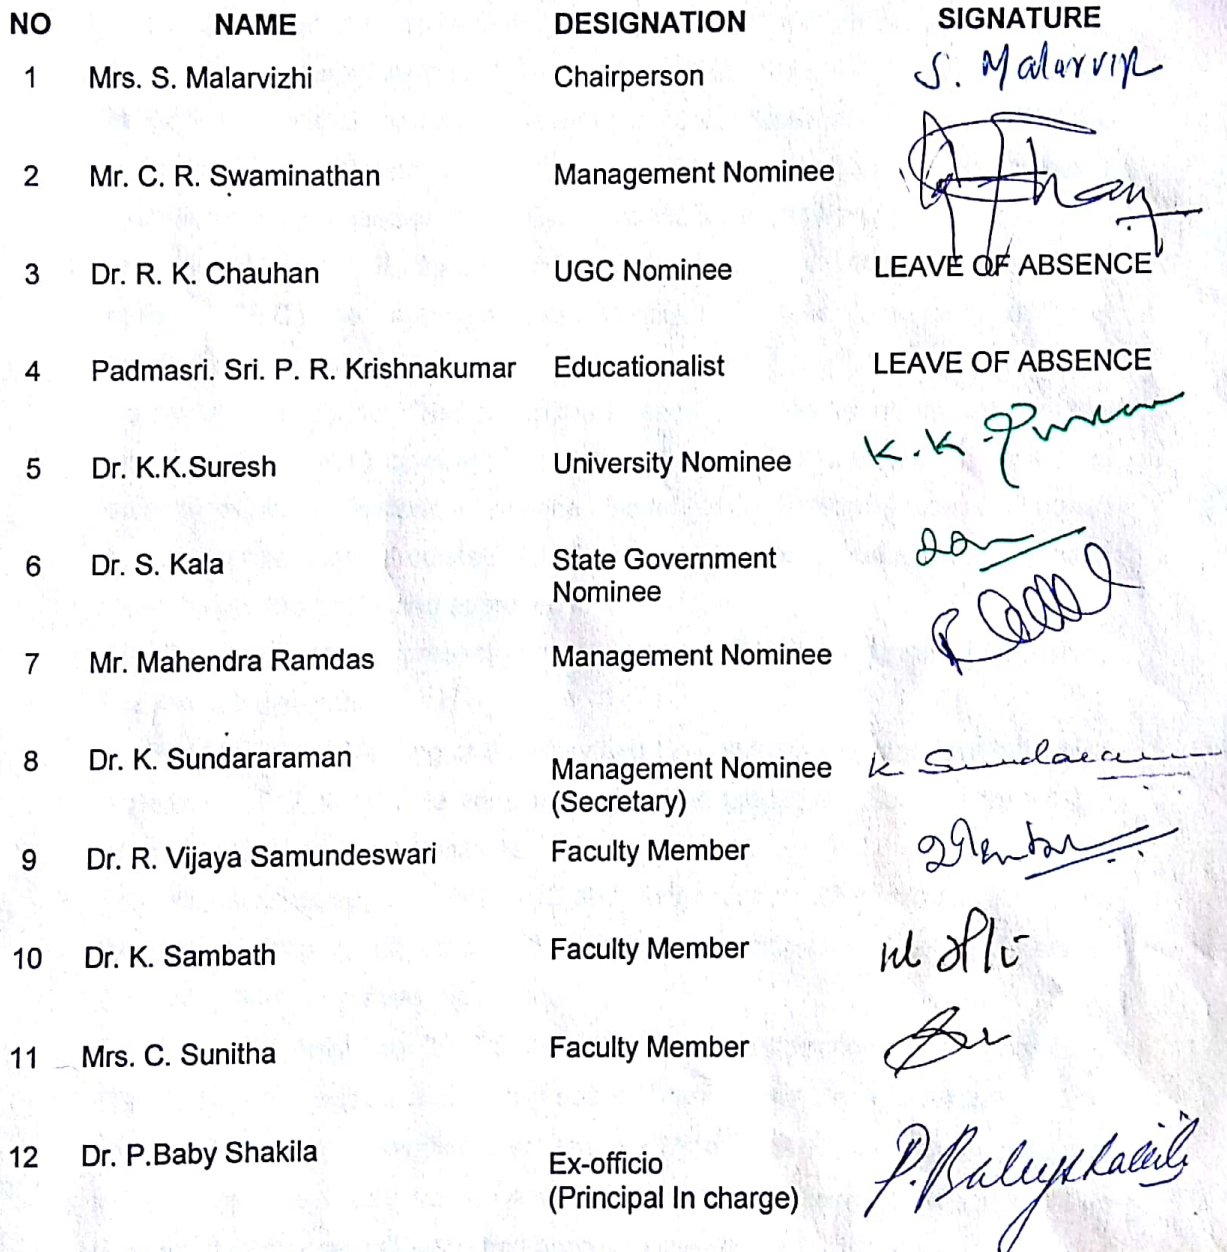 NO NAME DESIGNATION SIGNATURE
1 Mrs. S. Malarvizhi Chairperson S. Malarvizhi
2 Mr. C. R. Swaminathan Management Nominee
3 Dr. R. K. Chauhan UGC Nominee LEAVE OF ABSENCE
4 Padmasri. Sri. P. R. Krishnakumar Educationalist LEAVE OF ABSENCE
5 Dr. K.K.Suresh University Nominee K. K.
6 Dr. S. Kala State Government
Nominee
7 Mr. Mahendra Ramdas Management Nominee
8 Dr. K. Sundararaman Management Nominee K Sundararaman
(Secretary)
9 Dr. R. Vijaya Samundeswari Faculty Member
10 Dr. K. Sambath Faculty Member
11 Mrs. C. Sunitha Faculty Member
12 Dr. P.Baby Shakila Ex-officio P. Baby Shakila
(Principal In charge)